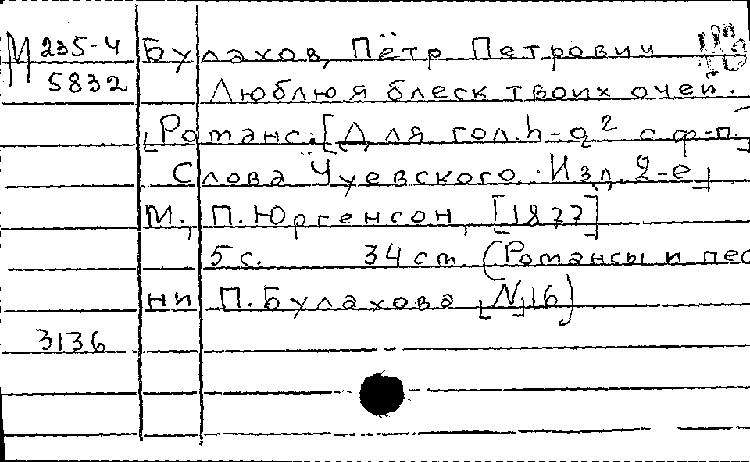 М 235-4 Булахов, Пётр Петрович
5832 Люблю я блеск твоих очей.
[Романс. [Для гол. h-g² с ф-п.]
Слова Чуевского. Изд. 2-е]
М., П. Юргенсон, [1877]
5 с. 34 см. (Романсы и пес
ни П. Булахова [№] 16)
3136